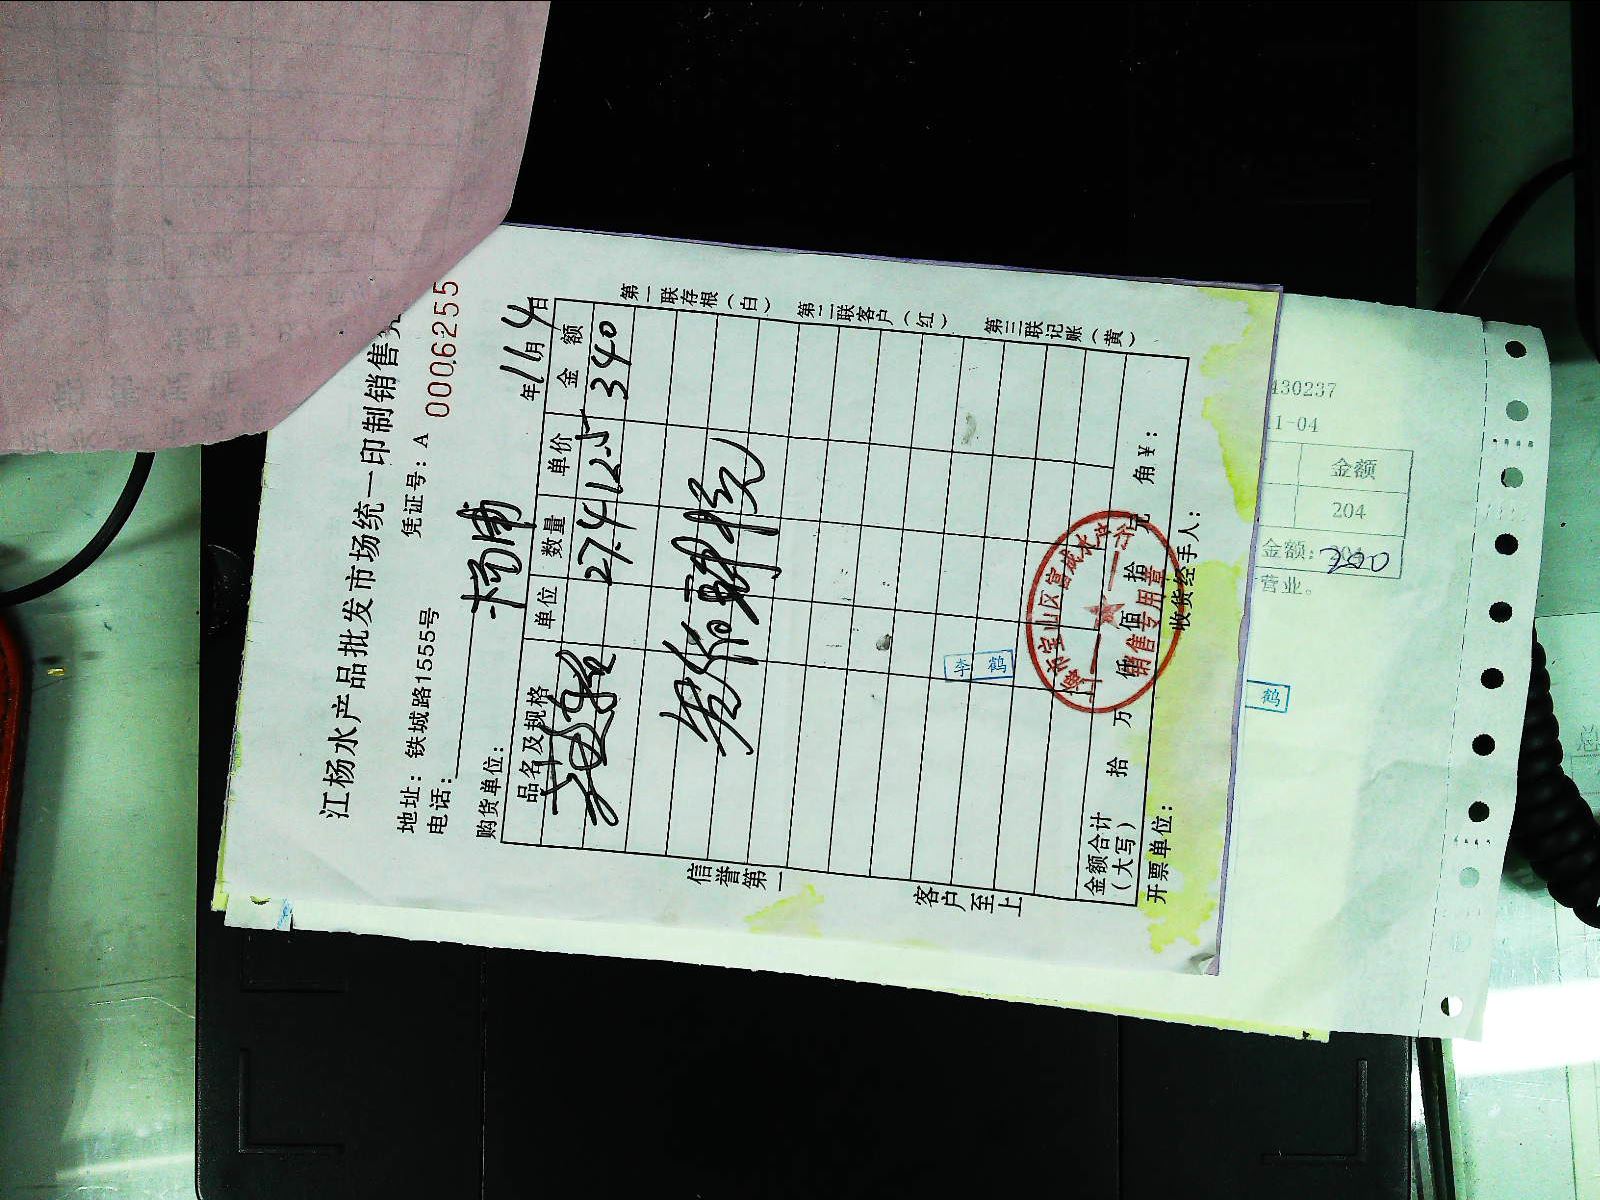 江杨水产品批发市场统一印制销售
地址：铁城路1555号 凭证号：A 0006255
电话：
购货单位： 年11月4日
品名及规格 单位 数量 单价 金额
27.4 12.5 340
第一联存根（白）
第二联客户（红）
第三联记账（黄）
信誉第一
客户至上
李鹤
上海市宝山区富成水产行
销售专用章
金额合计（大写） 拾 万 仟 佰 拾 元 角 ¥：
开票单位： 收货经手人：
430237
11-04
金额
204
金额：204
营业。
鹤
总